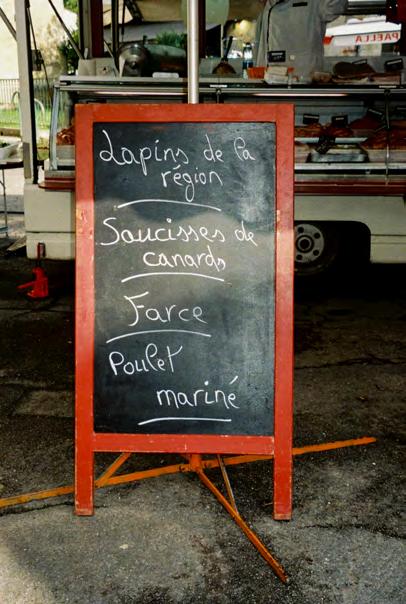 PAELLA
Lapins de la
région
Saucisses de
canards
Farce
Poulet
mariné